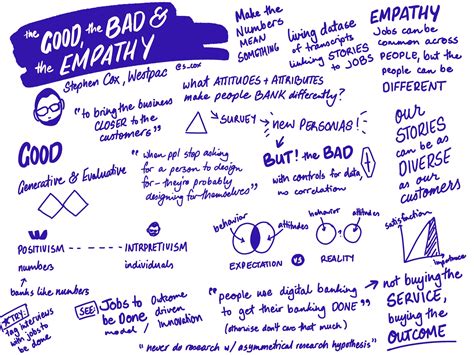 the GOOD, the BAD &
the EMPATHY
Stephen Cox, Westpac @s_cox
Make the
Numbers
MEAN
SOMETHING
living datase
of transcripts
linking STORIES
to JOBS
EMPATHY
Jobs can be
common across
PEOPLE, but the
people can be
DIFFERENT
"to bring the business
CLOSER to the
customers"
what ATTITUDES + ATTRIBUTES
make people BANK differently?
SURVEY
new PERSONAS!
BUT! the BAD
with controls for data,
no correlation
our
STORIES
can be
as
DIVERSE
as our
customers
GOOD
Generative & Evaluative
"when ppl stop asking
for a person to design
for - they're probably
designing for themselves"
POSITIVISM
numbers
INTRPRETIVISM
individuals
banks like numbers
behavior
attitudes
EXPECTATION
vs
behavior
attitudes
REALITY
satisfaction
importance
TRY:
Tag interviews
with jobs to
be done
SEE:
Jobs to
be Done
model /
Outcome
driven
Innovation
"people use digital banking
to get their banking DONE"
(otherwise don't care that much)
not buying the
SERVICE,
buying the
OUTCOME
"never do research w/ asymmetrical research hypothesis"